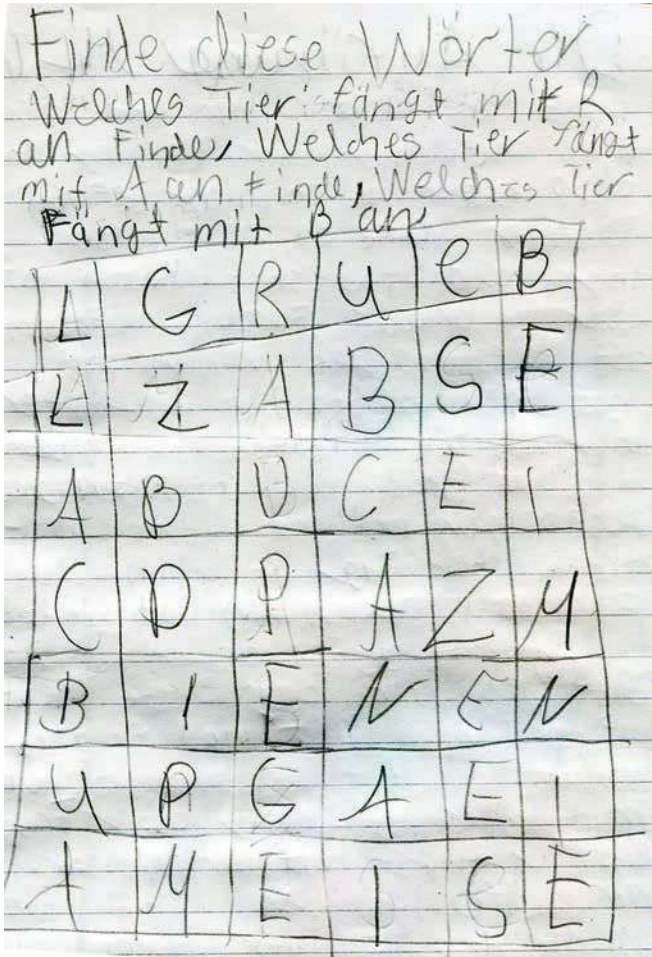 Finde diese Wörter
Welches Tier fängt mit R
an Finde, Welches Tier fängt
mit A an Finde, Welches Tier
Fängt mit B an
L G R U e B
L Z A B S E
A B U C E I
C D P A Z M
B I E N E N
U P G A E I
A M E I S E